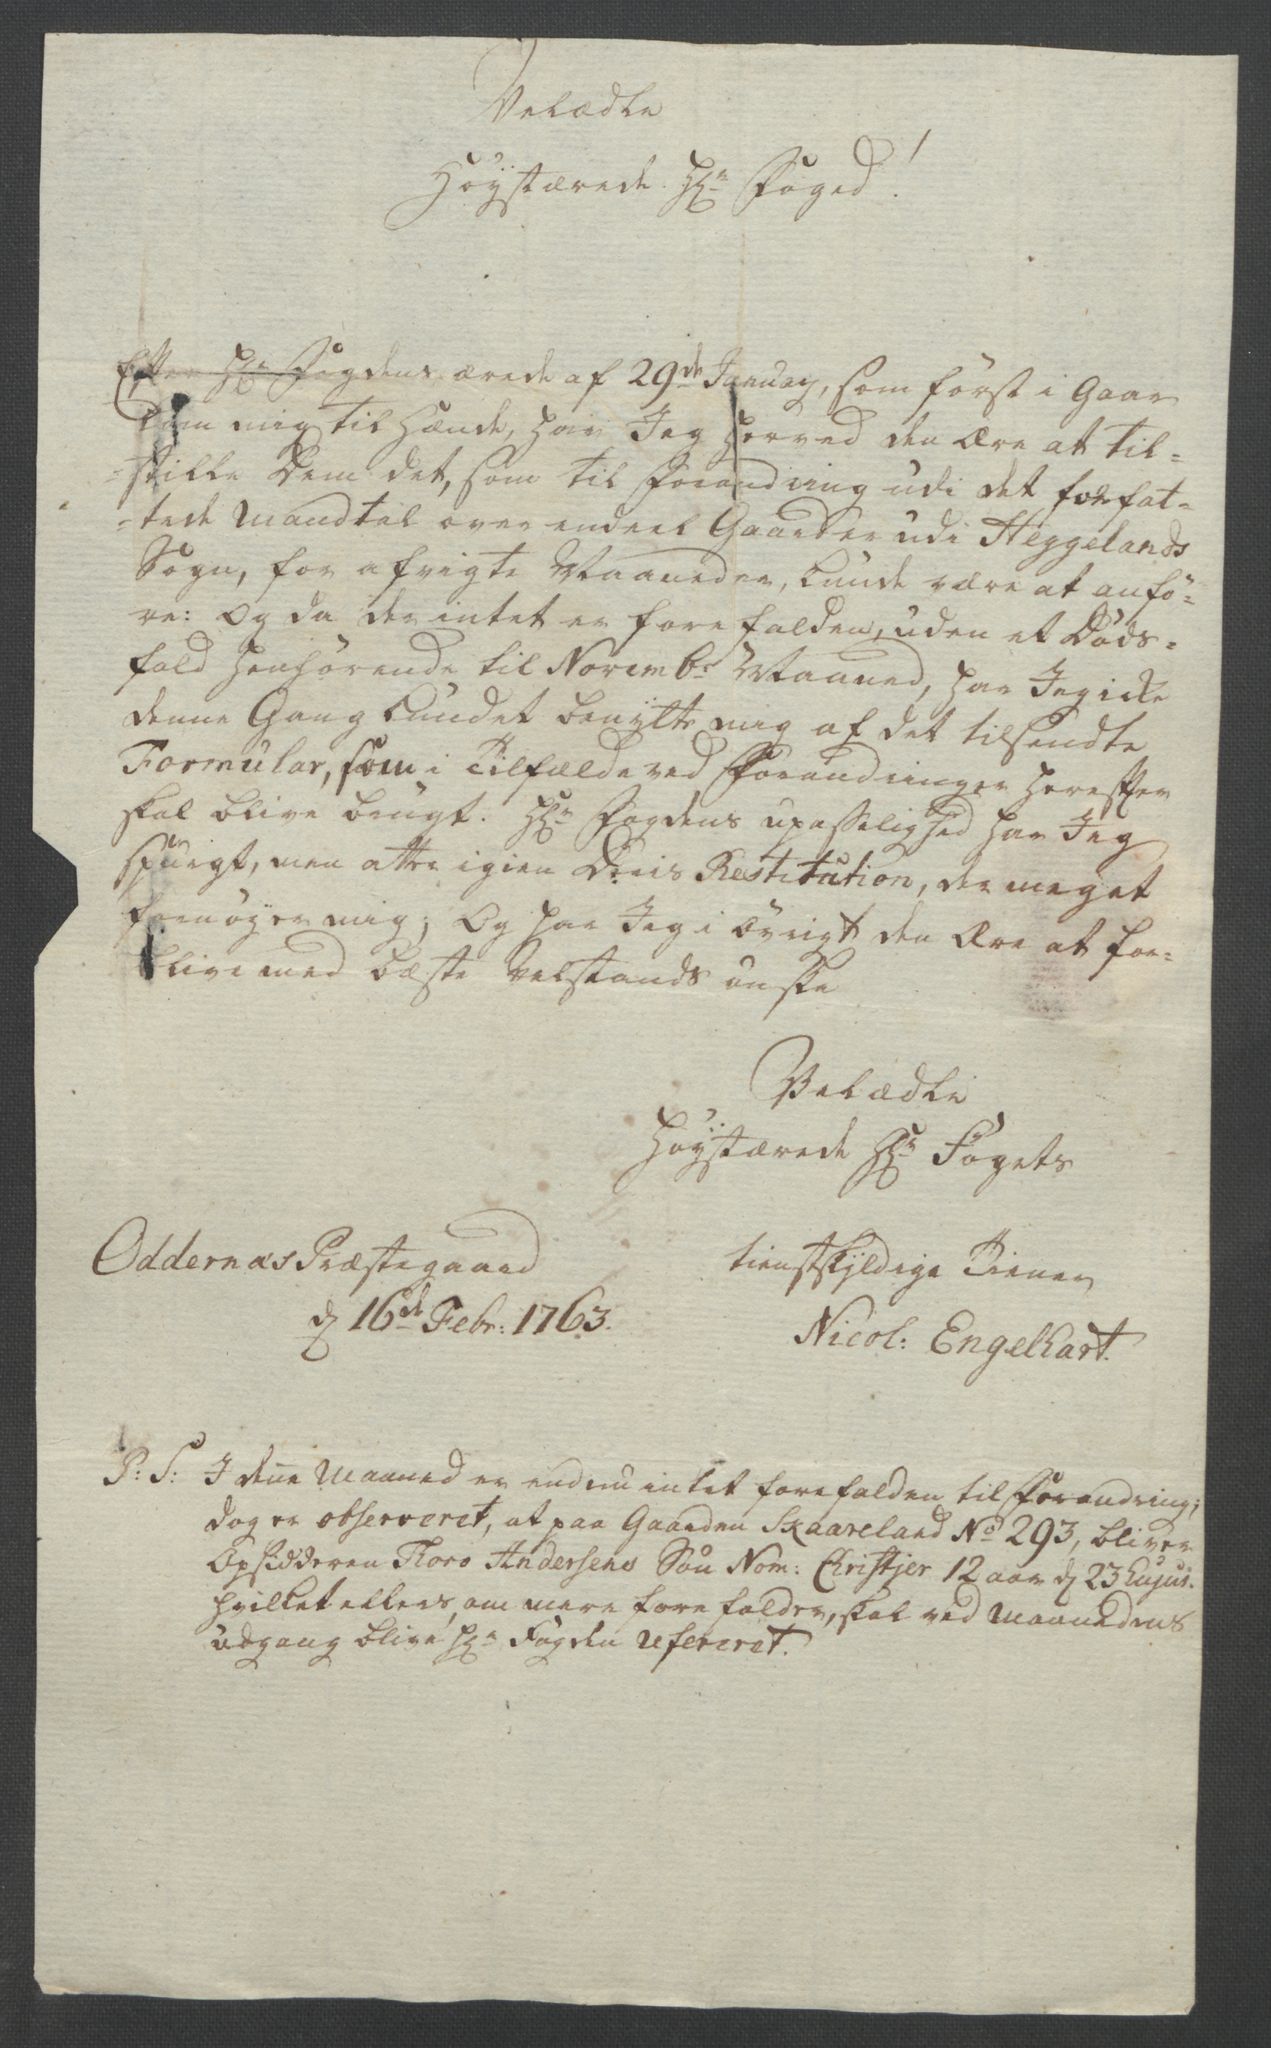 Velædle
Høystærede Hr. Foged!
Efter Hr. Fogdens ærede af 29de January, som først i Gaar
kom mig til Hænde, har Jeg herved den Ære at til-
-stille Dem det, som til Forandring udi det forfat-
-tede Mandtal over endeel Gaarder udi Heggelands
Sogn, for afvigte Maaneder, kunde være at anfø-
re: Og da der intet er forefalden, uden et Døds-
fald henhørende til Novembr Maaned, har Jeg icke
denne Gang kundet benytte mig af det tilsendte
Formular, som i Tilfælde ved Forandringer herefter
skal blive brugt. Hr. Fogdens upasselighed har Jeg
spurgt, men attre igien Deris Restitution, der meget
fornøyer mig; Og har Jeg i øvrigt den Ære at for-
blive med beste Velstands ønske
Velædle
Høystærede Hr. Fogets
Oddernæs Præstegaard
d 16de Febr: 1763.
tienstskyldige Tiener
Nicol: Engelhart.
P: S: I denne Maaned er endnu intet forefalden til Forandring;
dog er observeret, at paa Gaarden Skaareland No 293, bliver
Opsidderen Thoro Andersens Søn Nom: Christjer 12 aar d 23 hujus.
hvilket ellers, om mere forefalder, skal ved Maanedens
udgang blive Hr. Fogden refereret.